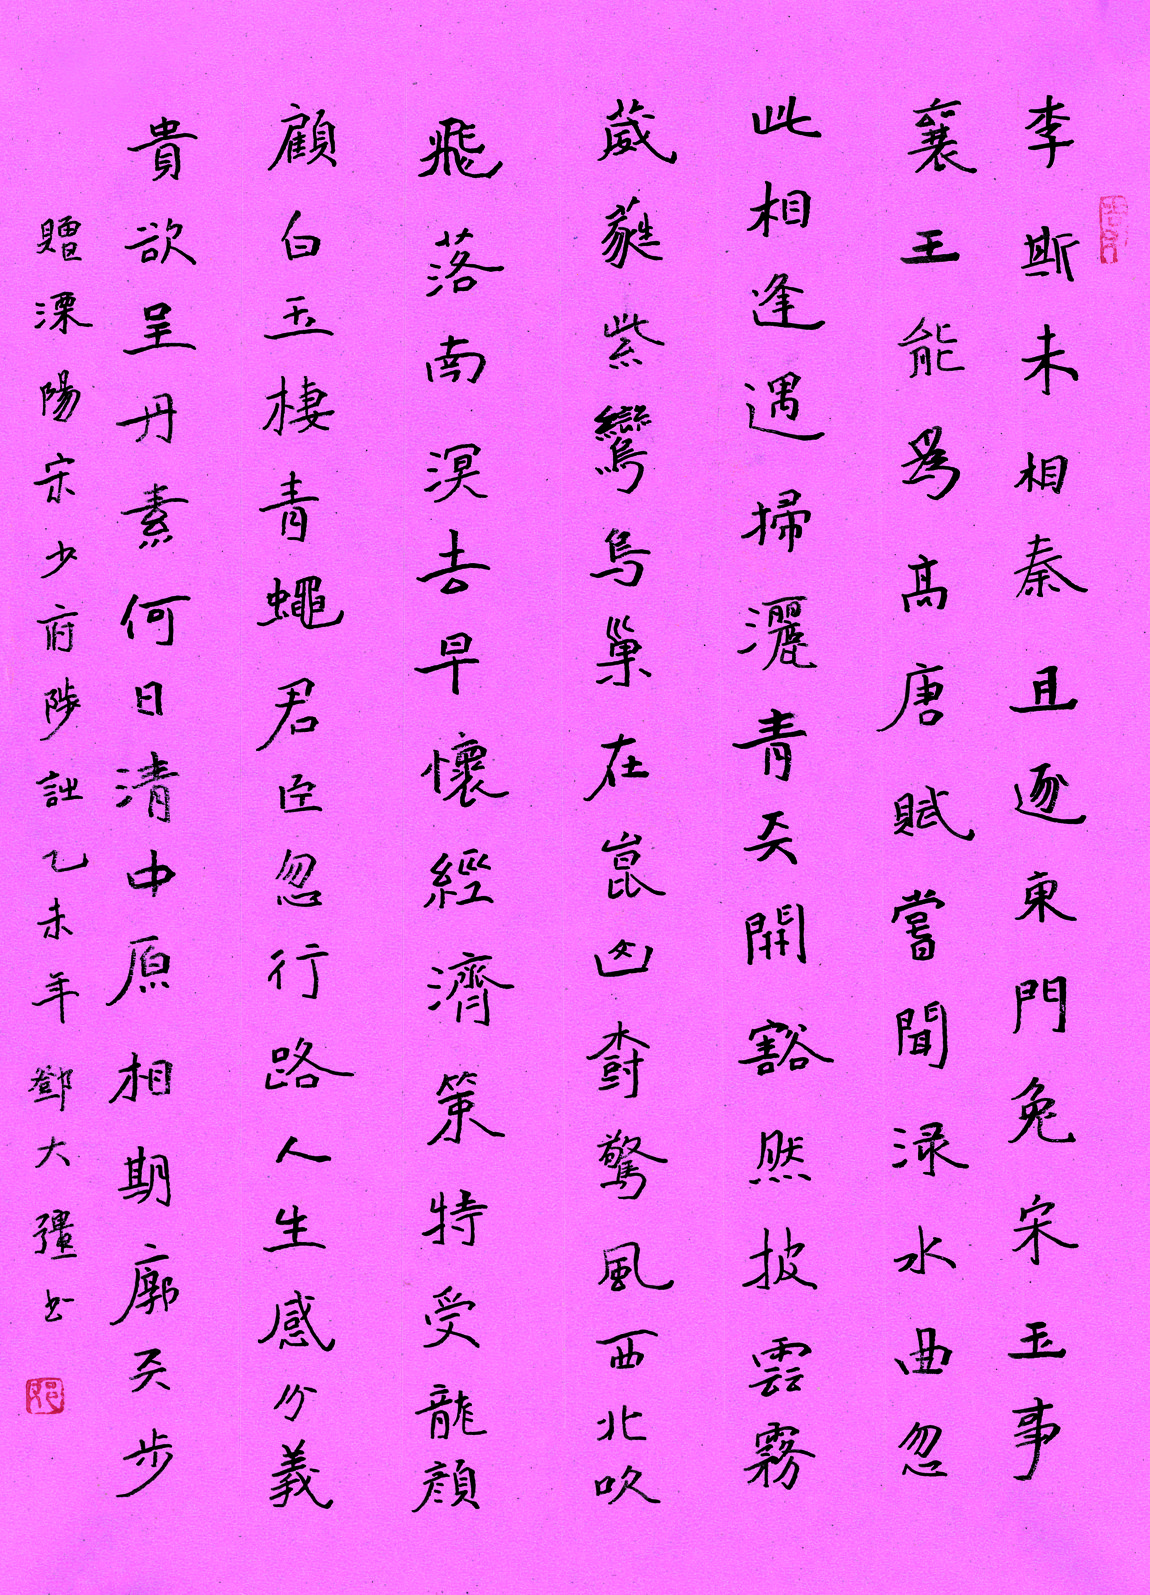 李斯未相秦且逐東門兔宋玉事
襄王能為高唐賦嘗聞渌水曲忽
此相逢遇掃灑青天開豁然披雲霧
葳蕤紫鸞鳥巢在崑山樹驚風西北吹
飛落南溟去早懷經濟策特受龍顏
顧白玉棲青蠅君臣忽行路人生感分義
貴欲呈丹素何日清中原相期廓天步
贈溧陽宋少府陟乙未年鄧大彊书